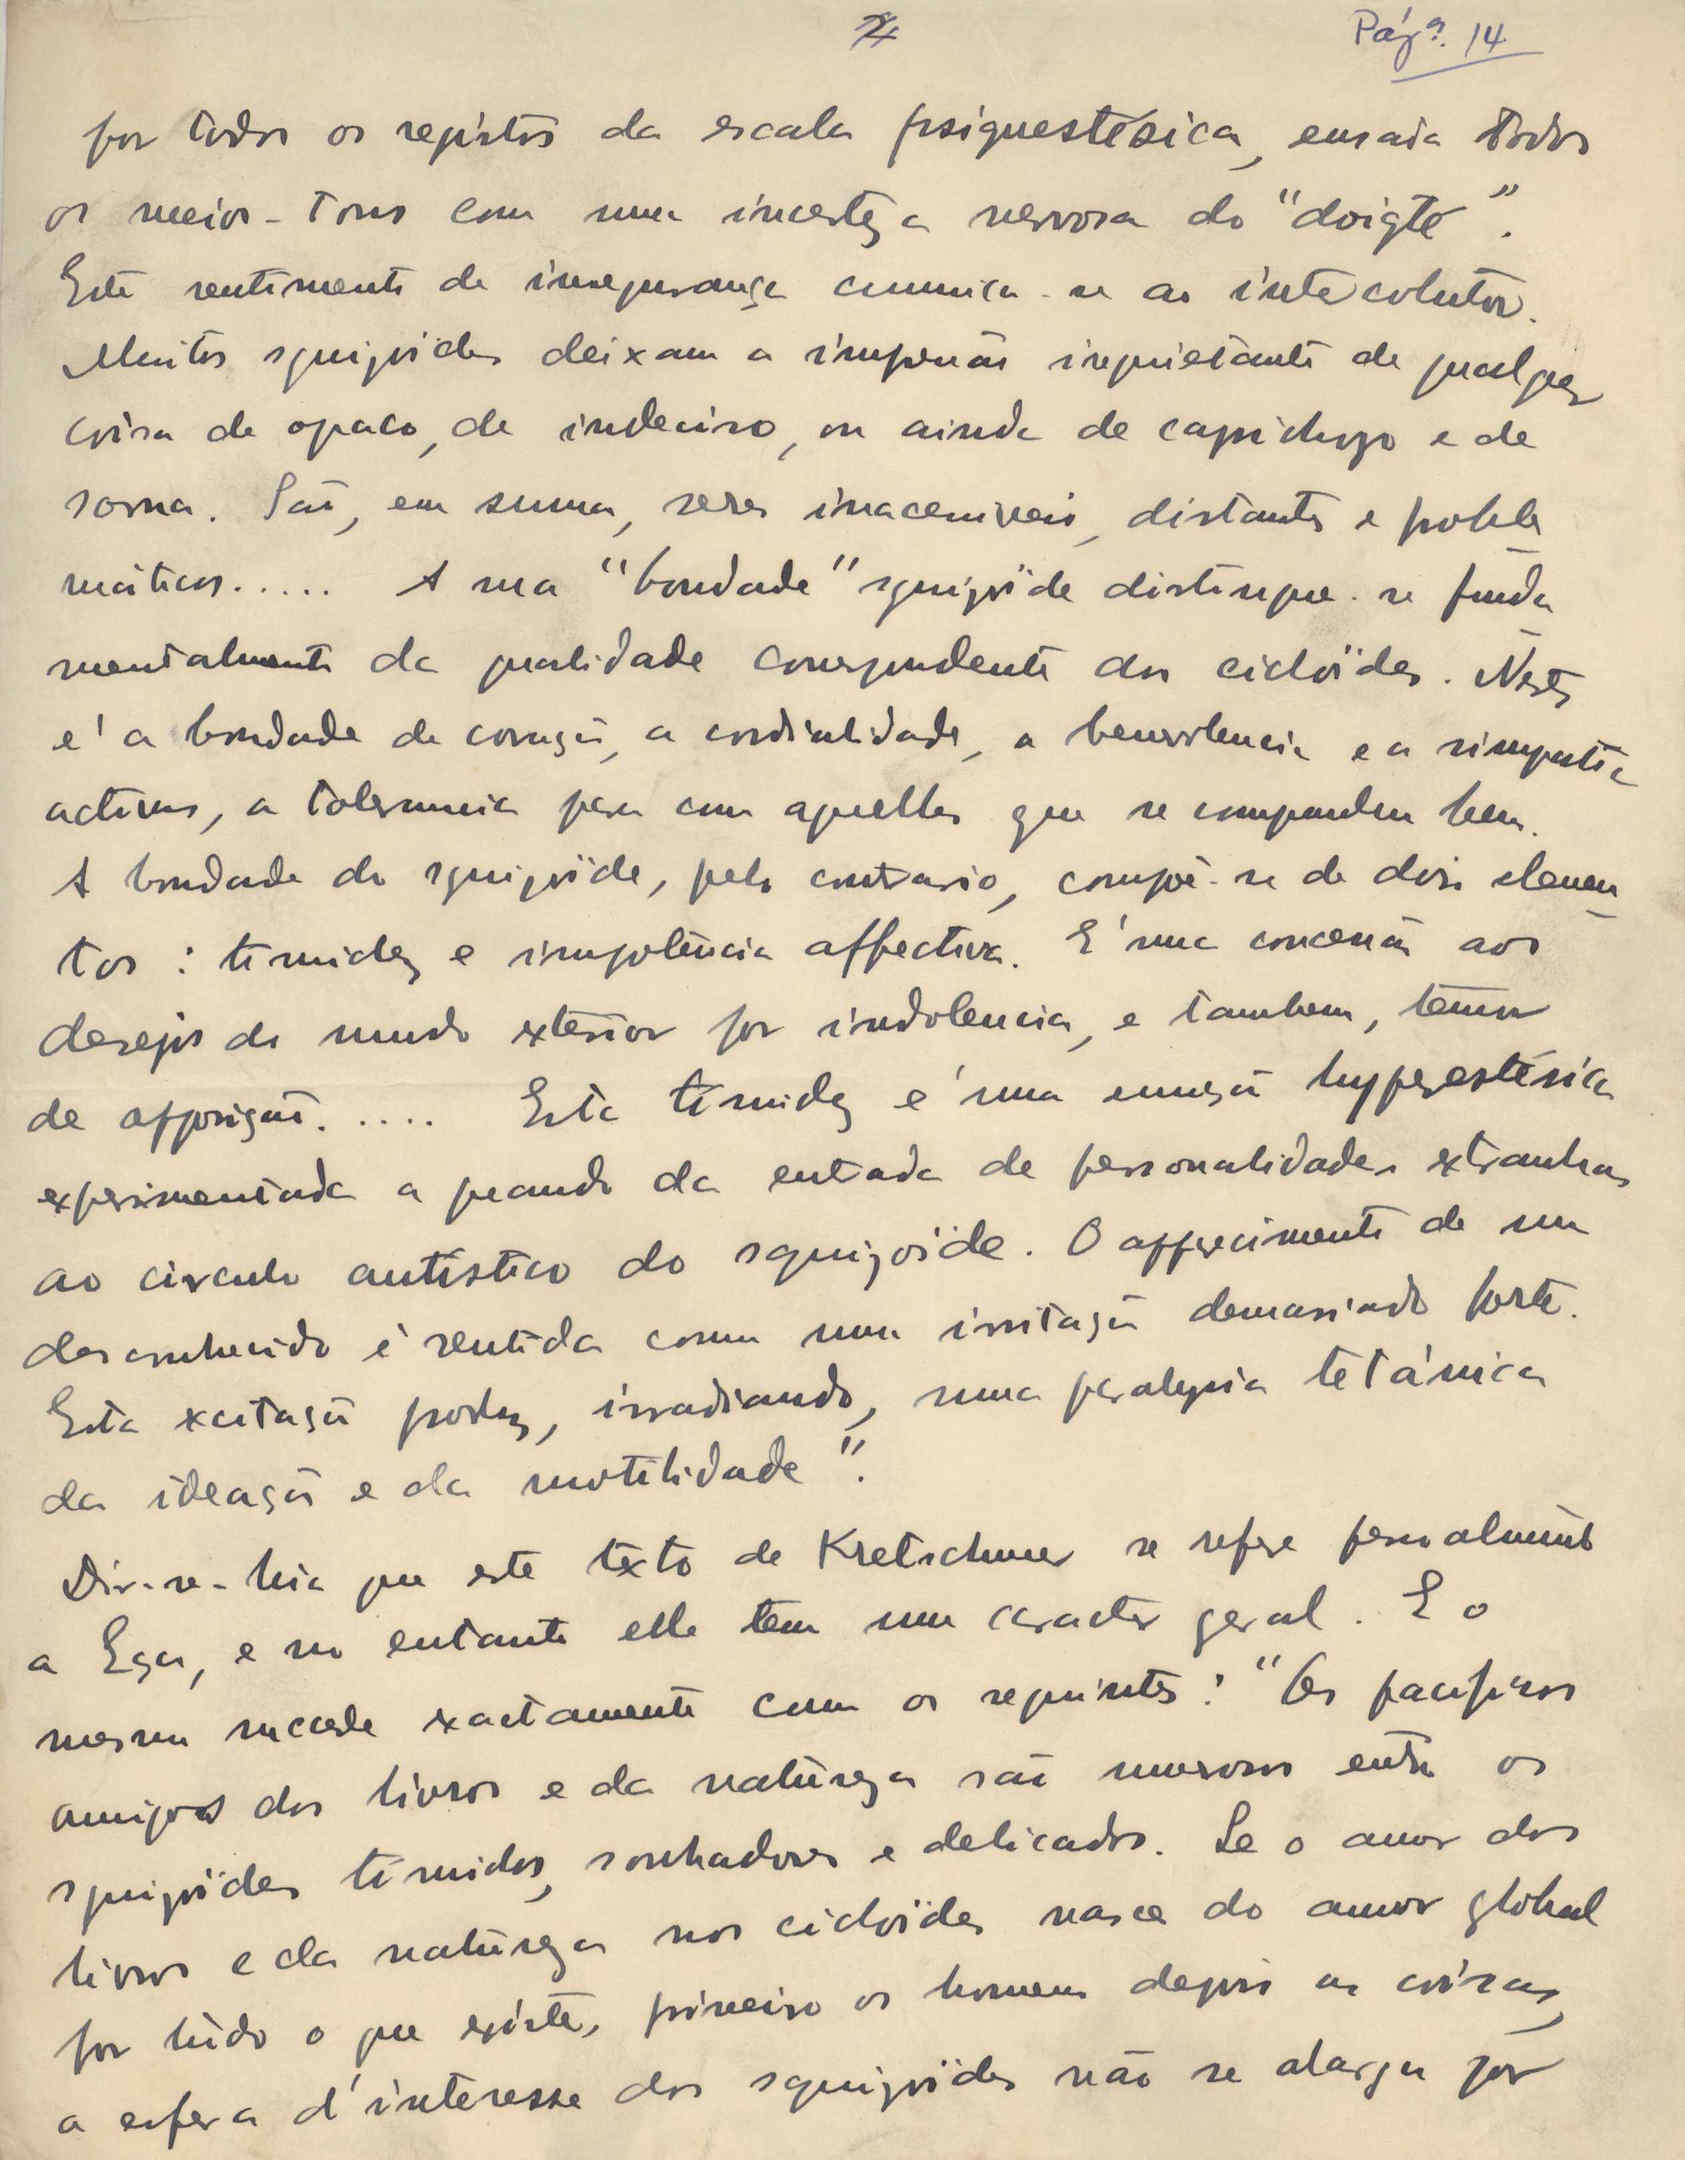 Pág.ª 14
por todos os registos da escala psiquestésica, ensaia todos
os meios-tons com uma incerteza nervosa do "doigté".
Este sentimento de insegurança comunica-se ao interlocutor.
Muitos squizoides deixam a impressão inquietante de qualquer
coisa de opaco, de indeciso, ou ainda de caprichozo e de
sorna. São, em suma, seres inacessiveis, distantes e proble
máticos..... A sua "bondade" squizoïde distingue-se funda
mentalmente da qualidade correspondente dos cicloïdes. Nestes
é a bondade de coração, a cordialidade, a benevolencia e a simpatia
activas, a tolerancia para com aquelles que se comprendem bem.
A bondade do squizoïde, pelo contrario, compõe-se de dois elemen
tos: timidez e impotência affectiva. É uma concessão aos
desejos do mundo exterior por indolencia, e tambem, temor
de opposição..... Esta timidez é uma emoção hyperestésica
experimentada a quando da entrada de personalidades extranhas
ao circulo autístico do squizoïde. O apparecimento de um
desconhecido é sentida como uma irritação demasiado forte.
Esta excitação produz, irradiando, uma paralysia tetánica
da ideação e da motilidade".
Dir-se-hia que este texto de Kretschmer se refere pessoalmente
a Eça, e no entanto elle tem um caracter geral. E o
mesmo succede exactamente com os seguintes: "Os pacificos
amigos dos livros e da natureza são numerosos entre os
squizoïdes tímidos, sonhadores e delicados. Se o amor dos
livros e da natureza nos cicloïdes nasce do amor global
por tudo o que existe, primeiro os homens depois as coisas,
a esfera d'interesse dos squizoïdes não se alarga por